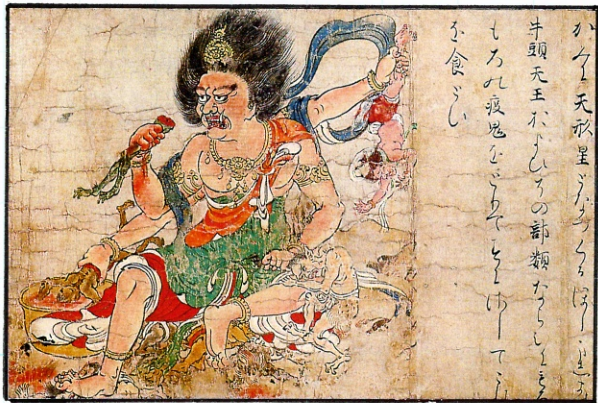 かみに天形星となつくるほしま
牛頭天王およひその部類ならひにもろ
もろの疫鬼をとりてすにさしてこれ
を食とす